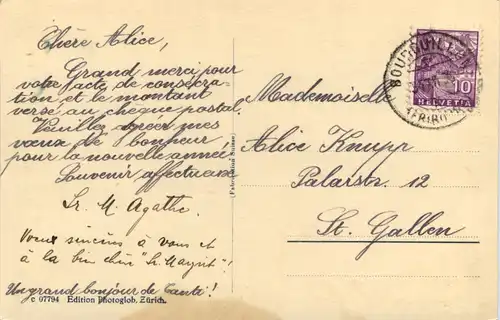 Chère Alice,
Grand merci pour
votre acte de consécra-
tion et le montant
versé au chèque postal.
Veuillez agréer mes
vœux de bonheur
pour la nouvelle année.
Souvenir affectueux
Sr. M. Agathe.
Vœux sincères à vous et
à la bien chère "Sr. Margrit"!
Un grand bonjour de Tante!
c 07794 Edition Photoglob. Zürich.
(Fabrication Suisse)
BOURGUILLON
FRIBOURG
10
HELVETIA
Mademoiselle
Alice Knupp
Palarstr. 12
St. Gallen